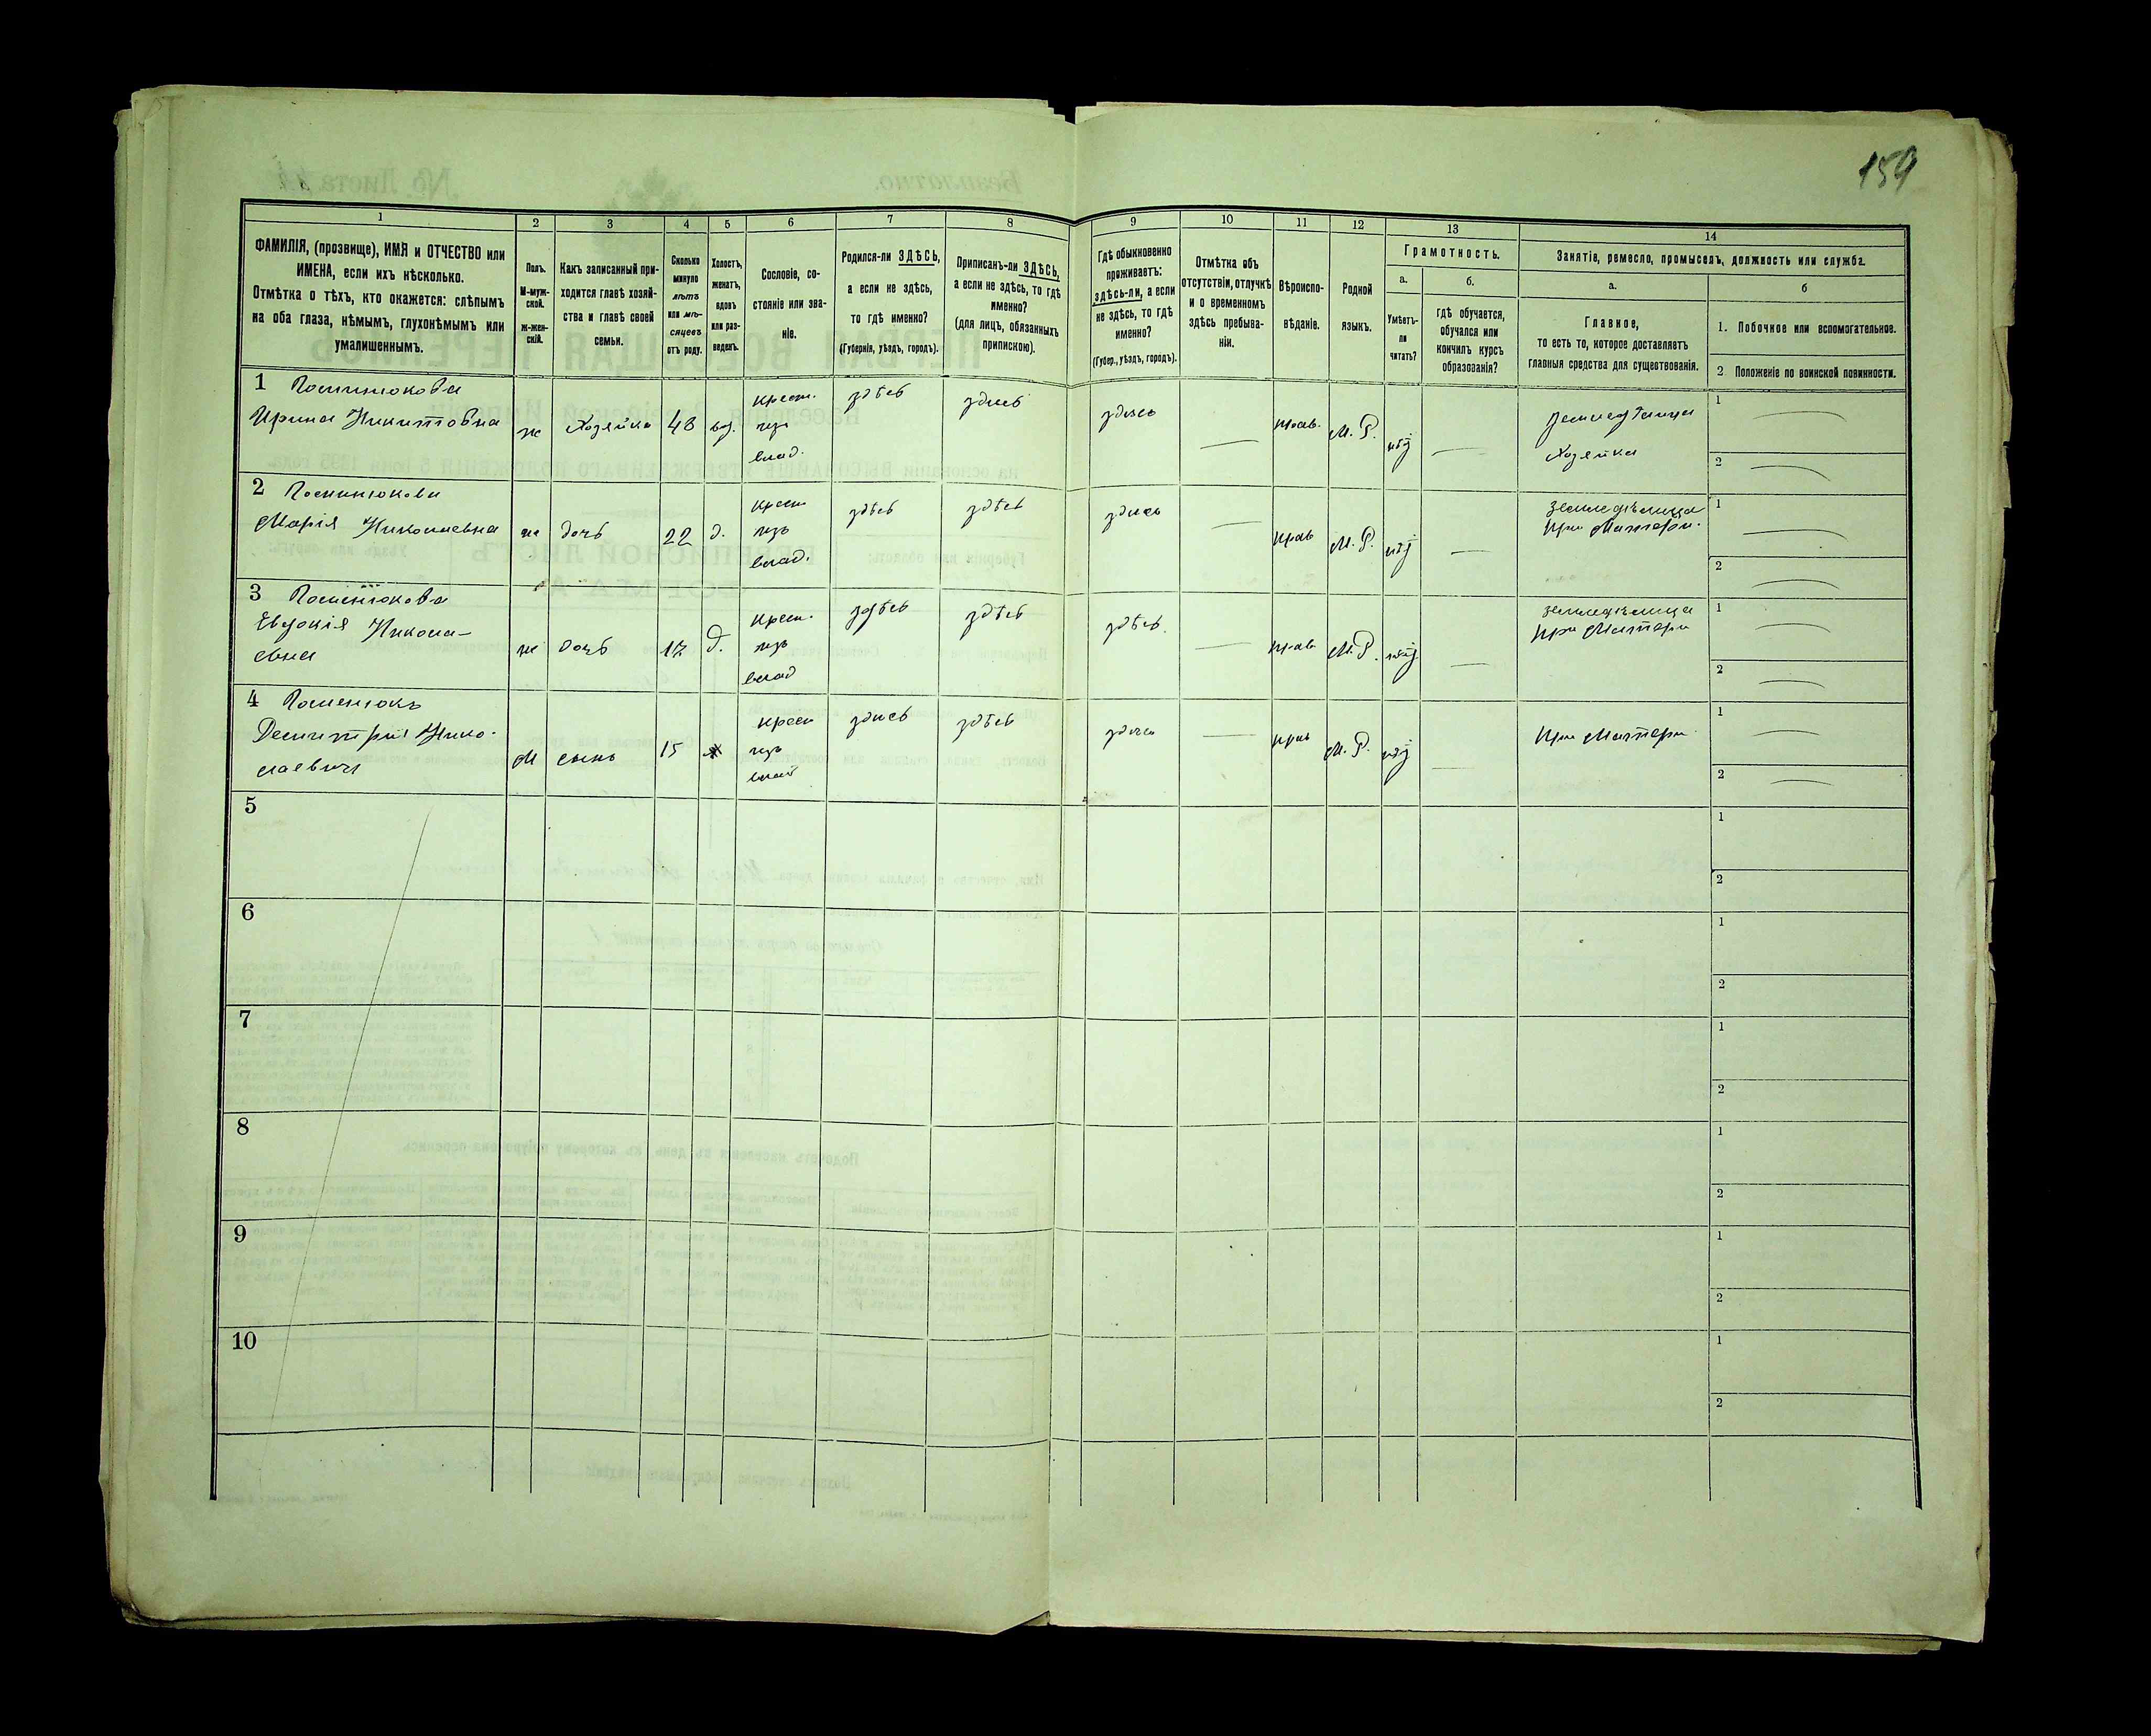 159
1
2
3
4
5
6
7
8
9
10
11
12
13
14
ФАМИЛІЯ, (прозвище), ИМЯ и ОТЧЕСТВО или
ИМЕНА, если ихъ нѣсколько.
Отмѣтка о тѣхъ, кто окажется: слѣпымъ
на оба глаза, нѣмымъ, глухонѣмымъ или
умалишеннымъ.
Полъ.
М-муж-
ской.
Ж-жен-
скій.
Какъ записанный при-
ходится главѣ хозяй-
ства и главѣ своей
семьи.
Сколько
минуло
лѣтъ
или мѣ-
сяцевъ
отъ роду.
Холостъ,
женатъ,
вдовъ
или раз-
веденъ.
Сословіе, со-
стояніе или зва-
ніе.
Родился-ли ЗДѢСЬ,
а если не здѣсь,
то гдѣ именно?
(Губернія, уѣздъ, городъ).
Приписанъ-ли ЗДѢСЬ,
а если не здѣсь, то гдѣ
именно?
(для лицъ, обязанныхъ
припискою).
Гдѣ обыкновенно
проживаетъ:
здѣсь-ли, а если
не здѣсь, то гдѣ
именно?
(Губер., уѣздъ, городъ).
Отмѣтка объ
отсутствіи, отлучкѣ
и о временномъ
здѣсь пребыва-
ніи.
Вѣроиспо-
вѣданіе.
Родной
языкъ.
Грамотность.
а.
Умѣетъ-
ли
читать?
б.
гдѣ обучается,
обучался или
кончилъ курсъ
образованія?
Занятіе, ремесло, промыселъ, должность или служба.
а.
Главное,
то есть то, которое доставляетъ
главныя средства для существованія.
б
1. Побочное или вспомогательное.
2 Положеніе по воинской повинности.
1
Ирина Никитовна
ж
Хозяйка
48
вд.
крест.
изъ
влад.
здѣсь
здись
здись
—
прав.
М. Р.
нѣт
—
Хозяйка
1
—
2
—
2
Марія Николаевна
ж
дочь
22
д.
крест
изъ
влад.
здѣсь
здѣсь
здись
—
прав
М. Р.
нѣт
—
земледѣлица
при Матери.
1
—
2
—
3
Евдокія Никола-
евна
ж
дочь
17
д.
крест.
изъ
влад
здѣсь
здѣсь
здѣсь.
—
прав.
М. Р.
нѣт
—
земледѣлица
при Матери
1
—
2
—
4
Деминтрій Нико-
лаевич
М
сынъ
15
х
крест
изъ
влад
здись
здѣсь
здись
—
прав
М. Р.
нѣт
—
При Матери
1
—
2
—
5
1
2
6
1
2
7
1
2
8
1
2
9
1
2
10
1
2